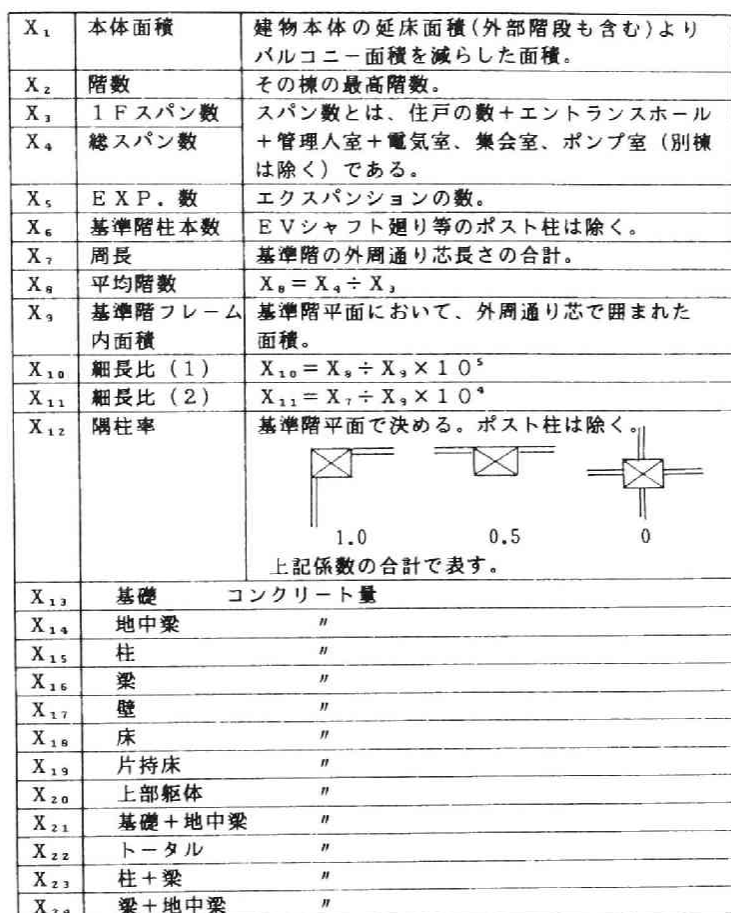 X₁ 本体面積 建物本体の延床面積(外部階段も含む)より
バルコニー面積を減らした面積。
X₂ 階数 その棟の最高階数。
X₃ 1Fスパン数 スパン数とは、住戸の数+エントランスホール
X₄ 総スパン数 +管理人室+電気室、集会室、ポンプ室(別棟
は除く)である。
X₅ EXP.数 エクスパンションの数。
X₆ 基準階柱本数 EVシャフト廻り等のポスト柱は除く。
X₇ 周長 基準階の外周通り芯長さの合計。
X₈ 平均階数 X₈=X₄÷X₃
X₉ 基準階フレーム 基準階平面において、外周通り芯で囲まれた
内面積 面積。
X₁₀ 細長比(1) X₁₀=X₈÷X₉×10⁵
X₁₁ 細長比(2) X₁₁=X₇÷X₉×10⁴
X₁₂ 隅柱率 基準階平面で決める。ポスト柱は除く。
1.0 0.5 0
上記係数の合計で表す。
X₁₃ 基礎 コンクリート量
X₁₄ 地中梁 〃
X₁₅ 柱 〃
X₁₆ 梁 〃
X₁₇ 壁 〃
X₁₈ 床 〃
X₁₉ 片持床 〃
X₂₀ 上部躯体 〃
X₂₁ 基礎+地中梁 〃
X₂₂ トータル 〃
X₂₃ 柱+梁 〃
X₂₄ 梁+地中梁 〃